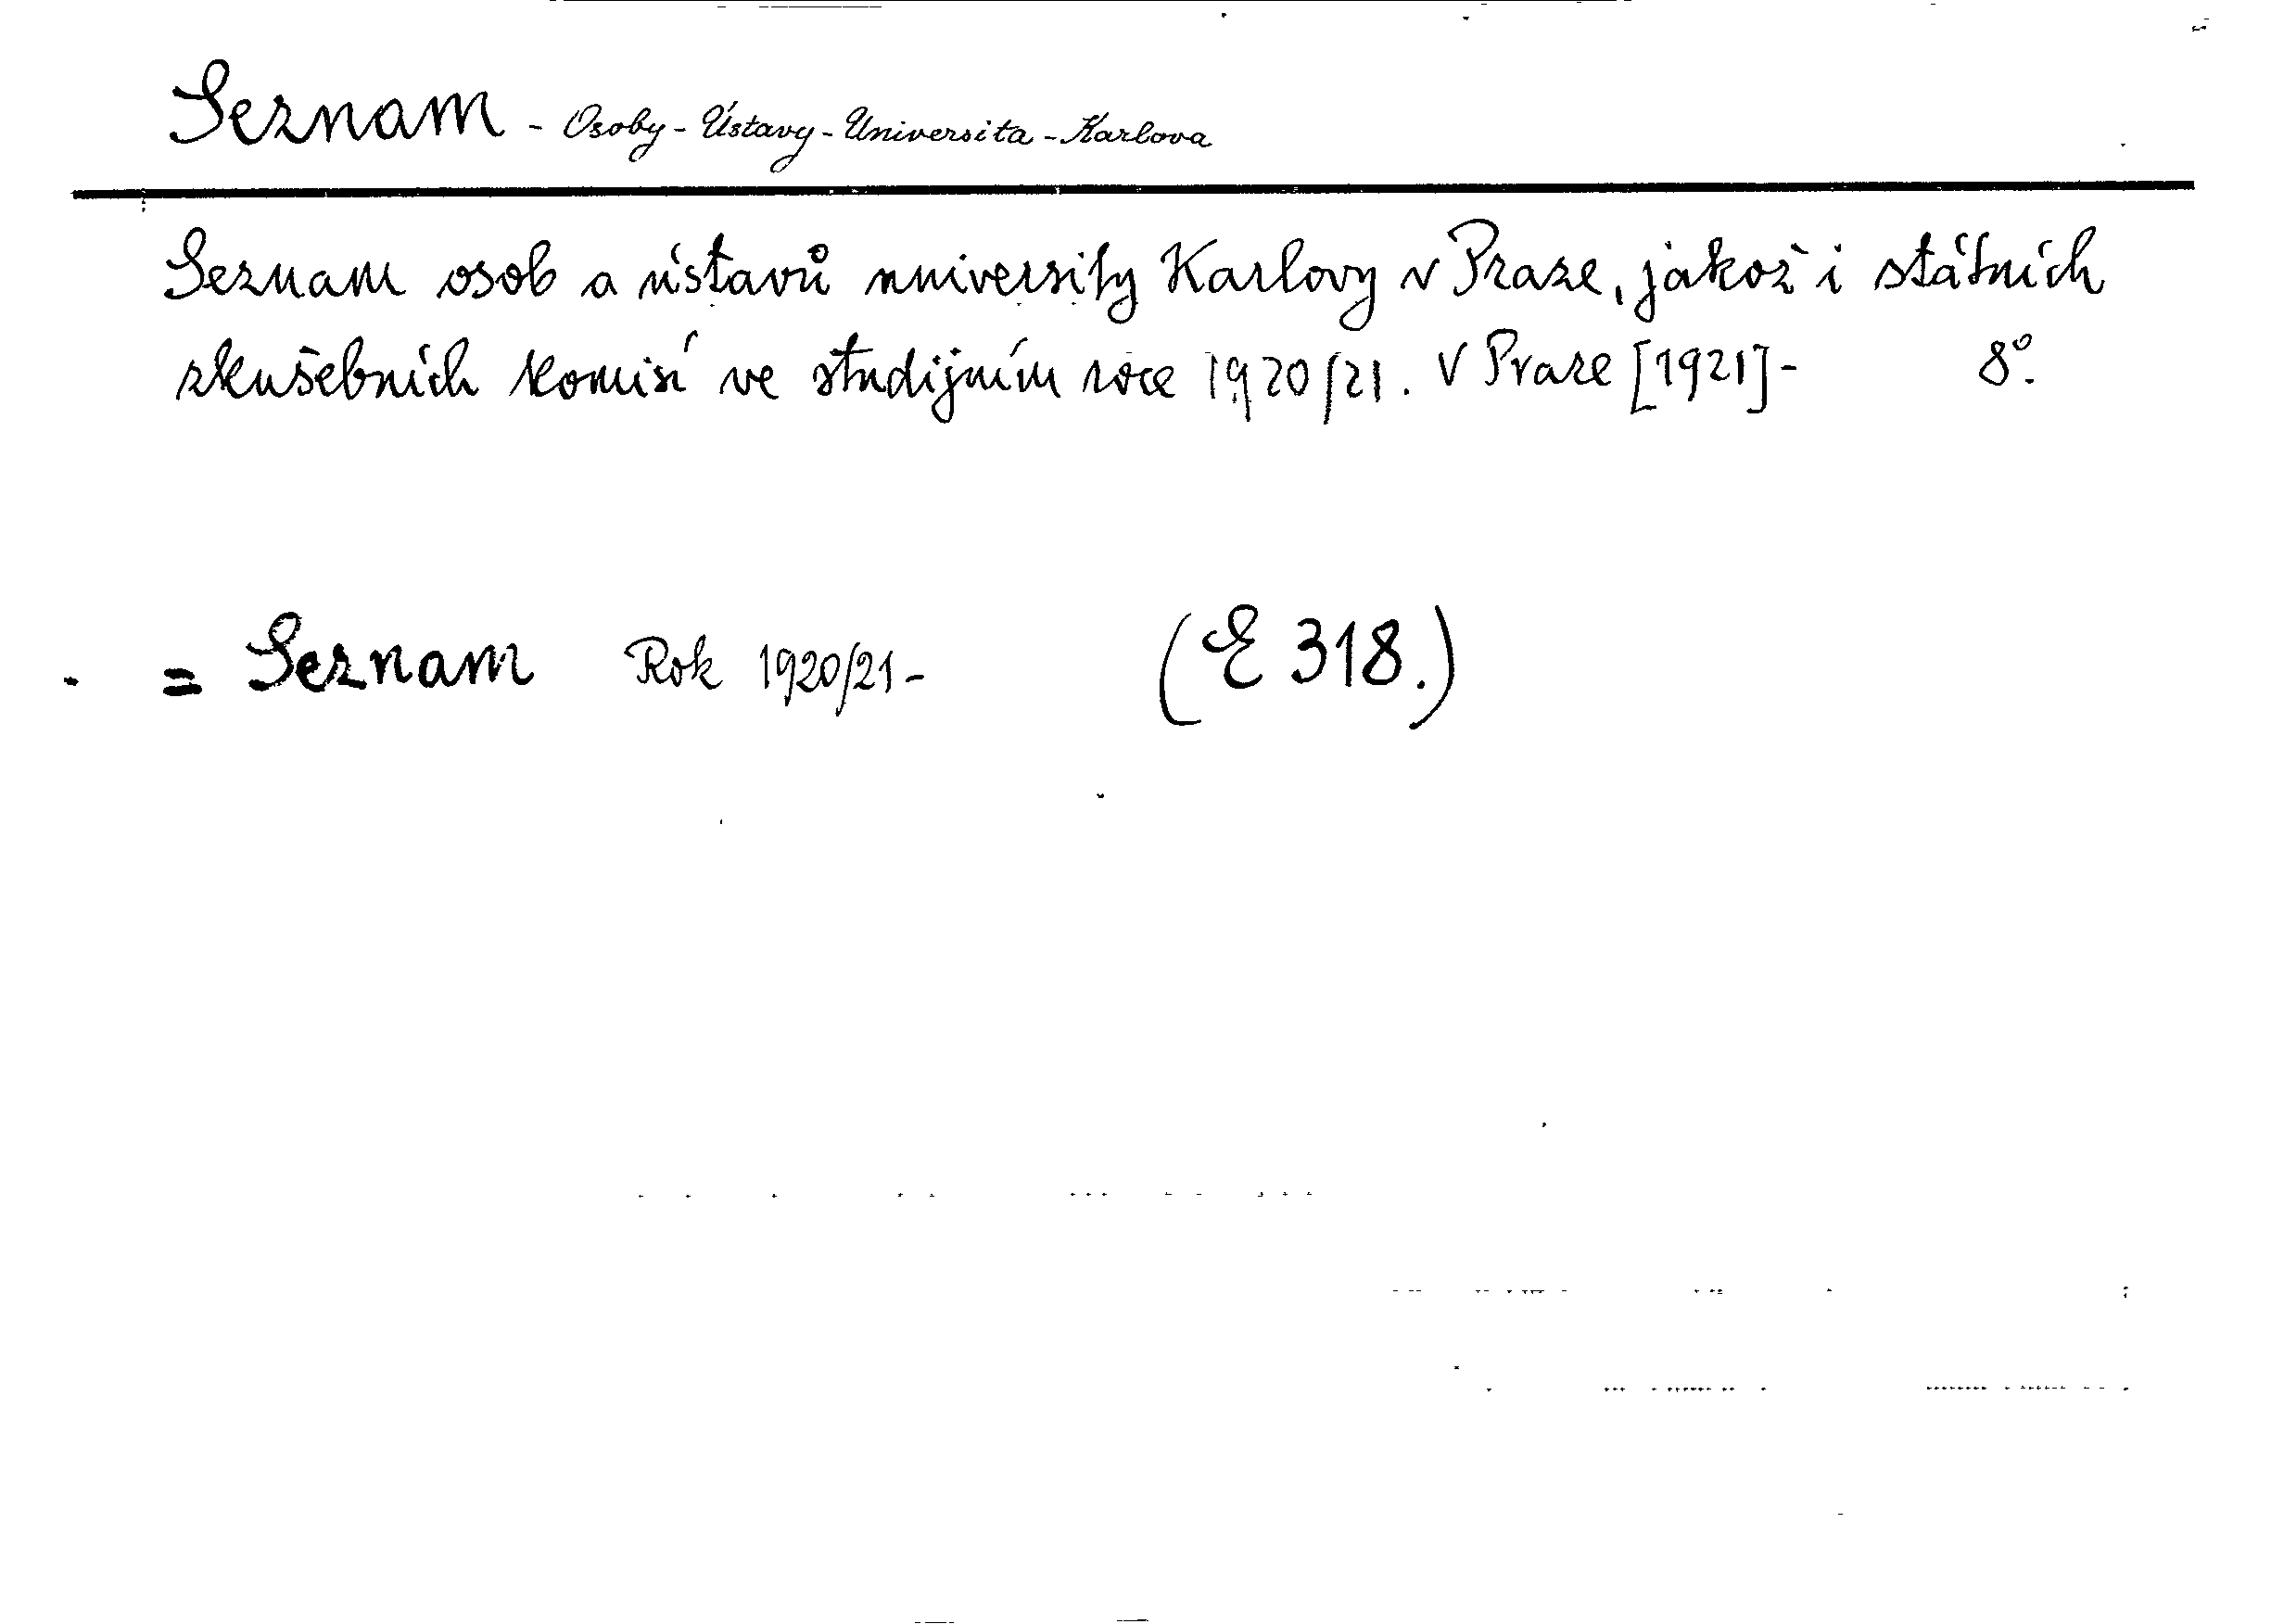 Seznam - Osoby - Ústavy - Universita - Karlova
Seznam osob a ústavů university Karlovy v Praze, jakož i státních
zkušebních komisí ve studijním roce 1920/21. V Praze [1921]- 8°.
= Seznam Rok 1920/21- (E 318.)